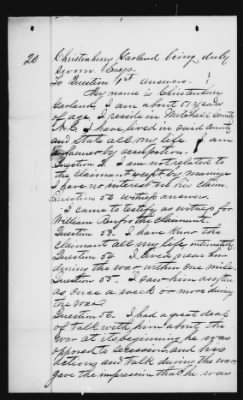 20
Christenbery Garland being duly
sworn. Says.
To Question 1st answers.
My name is Christenbery
Garland, I am about 51 years
of age, I reside in Mitchell County
N.C. I have lived in said County
and State all my life. I am
a farmer by occupation.
Question 2. I am not related to
the claimant except by marriage
I have no interest in his claim.
Question 52 witness answers.
I came to testify as witness for
William the claimant.
Question 53. I have known the
claimant all my life intimately
Question 54 I lived near him
during the war within one mile.
Question 55. I saw him as often
as once a week or more during
the war
Question 56. I had a great deal
of talk with him about the
war at its beginning he was
opposed to secession and his
actions and talk during the war
gave the impression that he was